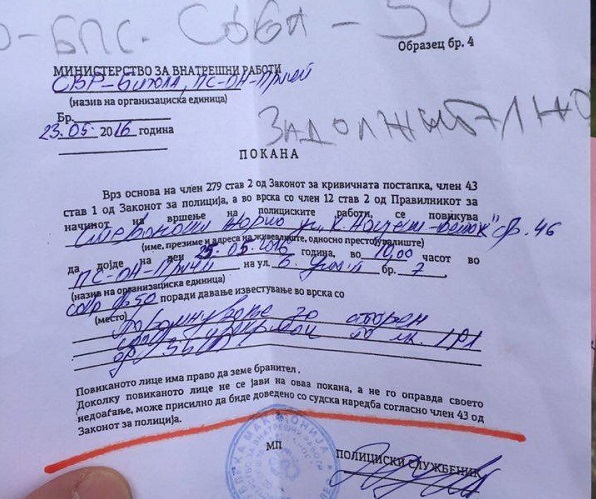 О-БПС. СОБА-50
Образец бр. 4
МИНИСТЕРСТВО ЗА ВНАТРЕШНИ РАБОТИ
СВР-Битола, ПС-ОН-Прилеп
(назив на организациска единица)
Бр.
23.05.2016 година
ЗАДОЛЖИТЕЛНО
ПОКАНА
Врз основа на член 279 став 2 од Законот за кривичната постапка, член 43
став 1 од Законот за полиција, а во врска со член 12 став 2 од Правилникот за
начинот на вршење на полициските работи, се повикува
ул. бр. 46
(име, презиме и адреса на живеалиште, односно престојувалиште)
да дојде на ден 25-05-2016 година, во 10,00 часот во
ПС-ОН-Прилеп на ул. бр. 7
(назив на организациска единица)
соба бр. 50 поради давање известување во врска со
(место)
за сторен
Повиканото лице има право да земе бранител.
Доколку повиканото лице не се јави на оваа покана, а не го оправда своето
недоаѓање, може присилно да биде доведено со судска наредба согласно член 43 од
Законот за полиција.
МП
ПОЛИЦИСКИ СЛУЖБЕНИК